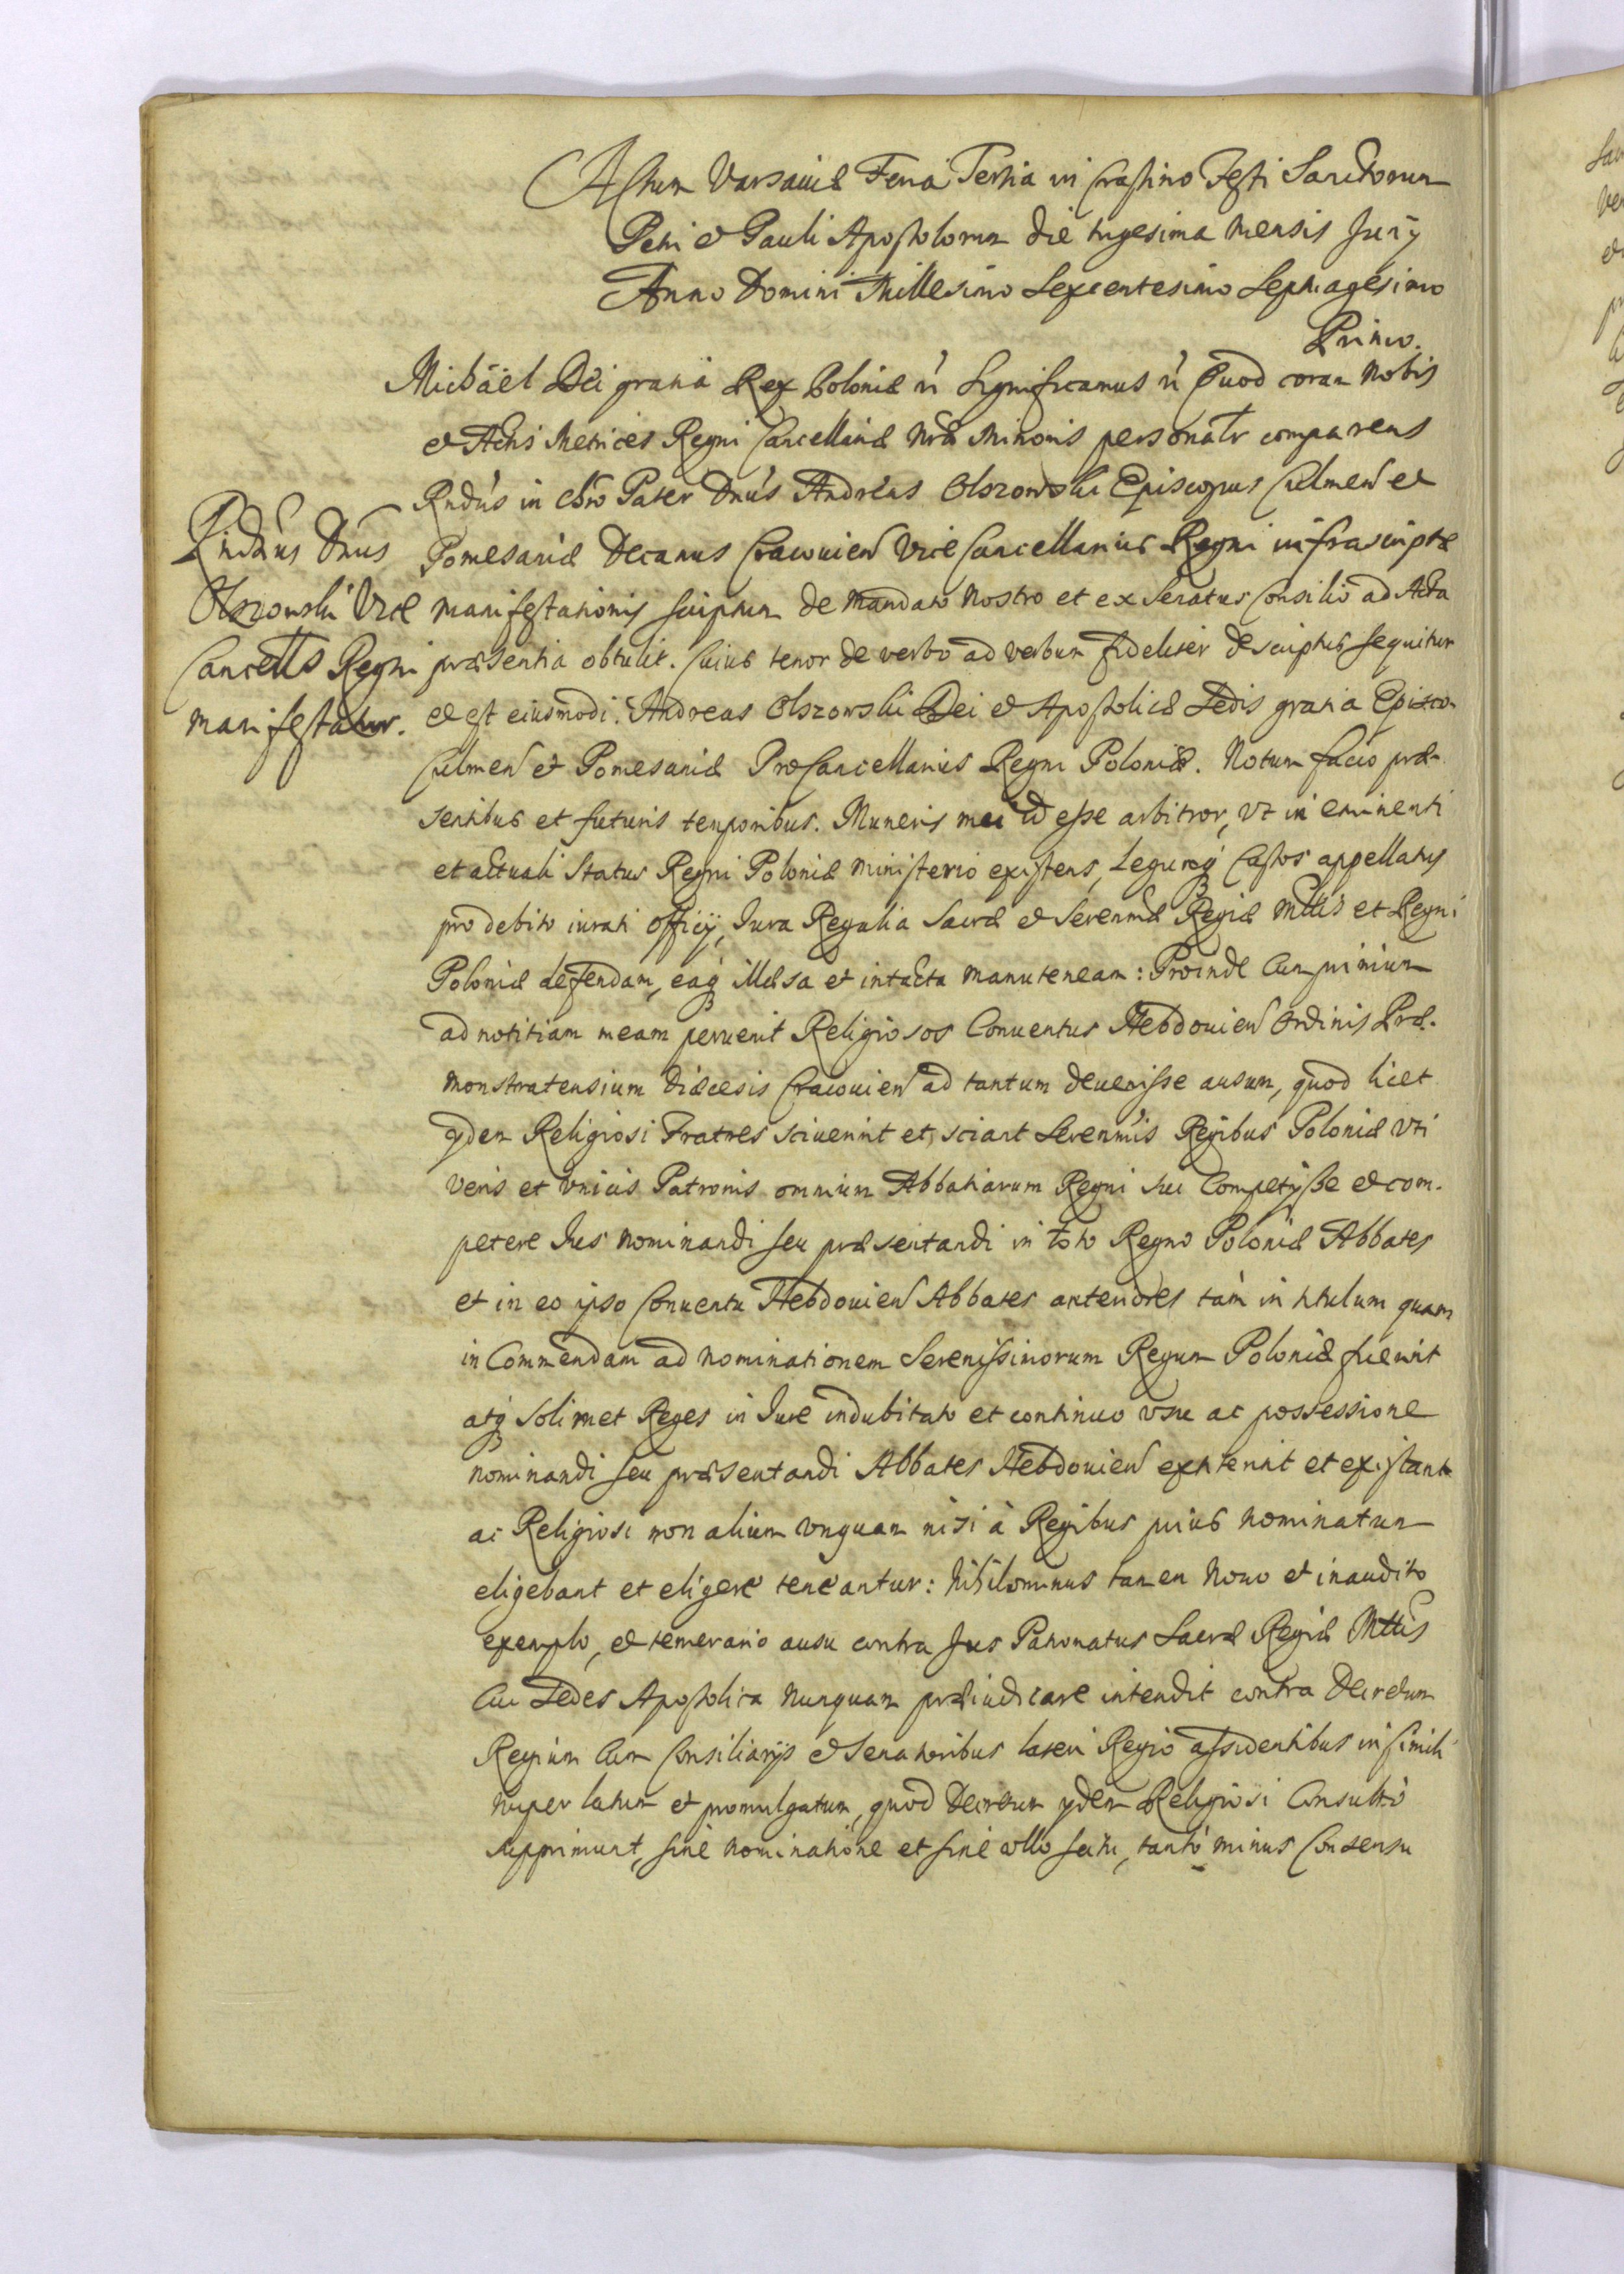 Actum Varsaviæ Feria Tertia in Crastino Festi Sanctorum
Petri et Pauli Apostolorum die trigesima mensis Junÿ
Anno Domini Millesimo Sexcentesimo Septuagesimo
Primo.
Michäel Dei gratia Rex Poloniæ &c Significamus &c Quod coram Nobis
et Actis Metrices Regni Cancellariæ Nræ Minoris personatr comparens
Rndus in Chro Pater Dnus Andreas Olszowski Episcopus Culmen et
Pomesaniæ Decanus Cracouien Vice Cancellarius Regni infrascriptæ
manifestationis scriptum de mandato Nostro et ex Senatus Consilio ad Acta
præsentia obtulit. Cuius tenor de verbo ad verbum fideliter descriptus sequitur
et est eiusmodi. Andreas Olszowski Dei et Apostolicæ Sedis gratia Episco.
Culmen et Pomesaniæ ProCancellarius Regni Poloniæ. Notum facio præ-
sentibus et futuris temporibus. Muneris mei id esse arbitror, vt in eminenti
et actuali Status Regni Poloniæ ministerio existens, Legumq Custos appellatus
pro debito iurati officÿ, Iura Regalia Sacræ et Serenmæ Regiæ Mttis et Regni
Poloniæ defendam, eaq illæsa et intacta manuteneam: Proinde Cum primum
ad notitiam meam peruenit Religiosos Conuentus Hebdouien Ordinis Præ-
monstratensium Diæcesis Cracouien ad tantum deuenisse ausum, quod licet
ÿdem Religiosi Fratres sciuerint et sciant Serenmis Regibus Poloniæ vti
veris et vnicis Patronis omnium Abbatiarum Regni sui Competÿsse et com-
petere Ius nominandi seu præsentandi in toto Regno Poloniæ Abbates
et in eo ipso Conuentu Hebdouien Abbates anteriores tam in titulum quam
in Commendam ad nominationem Serenissimorum Regum Poloniæ fuerint
atq solimet Reges in Iure indubitato et continuo vsu ac possessione
nominandi seu præsentandi Abbates Hebdouien extiterint et existant
ac Religiosi non alium vnquam nisi à Regibus prius nominatum
eligebant et eligere teneantur: Nihilominus tamen nouo et inaudito
exemplo, et temerario ausu contra Jus Patronatus Sacræ Regiæ Mttis
Cui Sedes Apostolica nunquam præiudicare intendit contra Decretum
Regium Cum Consiliarÿs et Senatoribus lateri Regio assidentibus in simili
nuper latum et promulgatum, quod Decretum ÿdem Religiosi Consultò
supprimunt, sine nominatione et sine vllo scitu, tantò minus Consensu
Rndnus Dnus
Olszowski Vice
Cancells Regni
manifestatur.